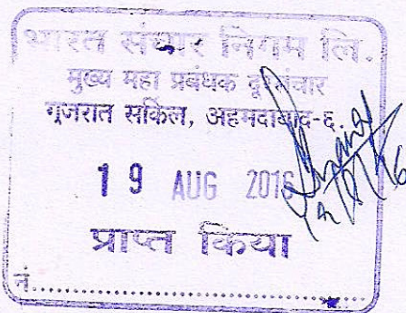 भारत संचार निगम लि.
मुख्य महा प्रबंधक दूरसंचार
गुजरात सर्किल, अहमदाबाद-६.
19 AUG 2016
प्राप्त किया
नं.